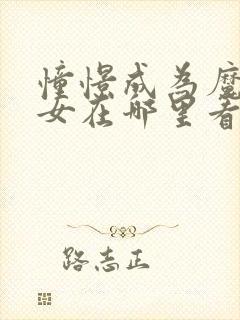 憧憬成为魔
女在哪里看
路志正